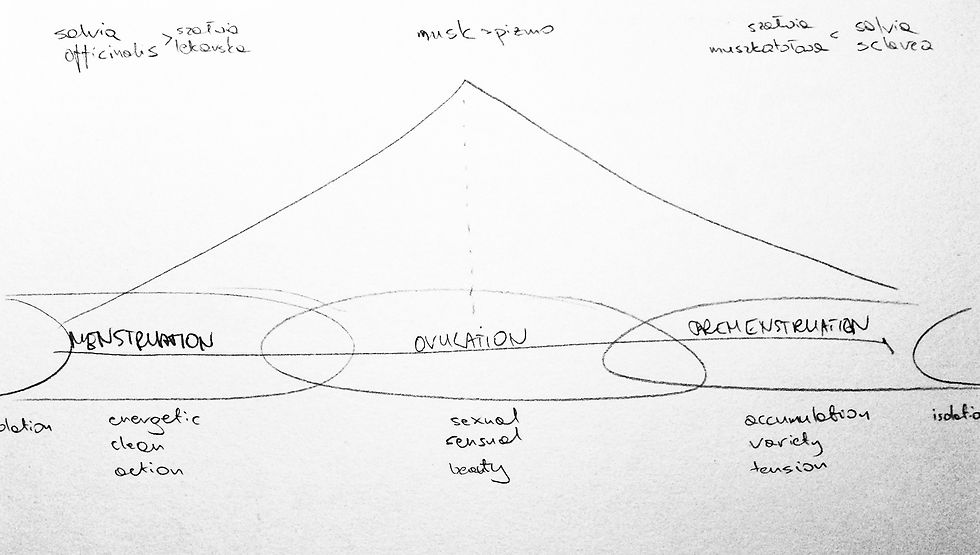 salvia > szałwia
officinalis lekarska
musk > piżmo
szałwia < salvia
muszkatołowa sclarea
MENSTRUATION
OVULATION
olation
energetic
clean
action
sexual
sensual
beauty
accumulation
variety
tension
isolatio